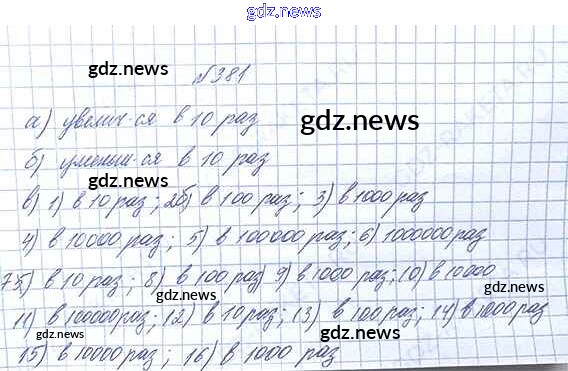 gdz.news
gdz.news
№381
а) увелич-ся в 10 раз
gdz.news
б) уменьш-ся в 10 раз
gdz.news
в) 1) в 10 раз; 2б) в 100 раз; 3) в 1000 раз
4) в 10000 раз; 5) в 100000 раз; 6) 1000000 раз
75) в 10 раз; 8) в 100 раз 9) в 1000 раз; 10) в 10000
gdz.news
gdz.news
11) в 100000 раз; 12) в 10 раз; 13) в 100 раз; 14) в 1000 раз
gdz.news
gdz.news
15) в 10000 раз; 16) в 1000 раз